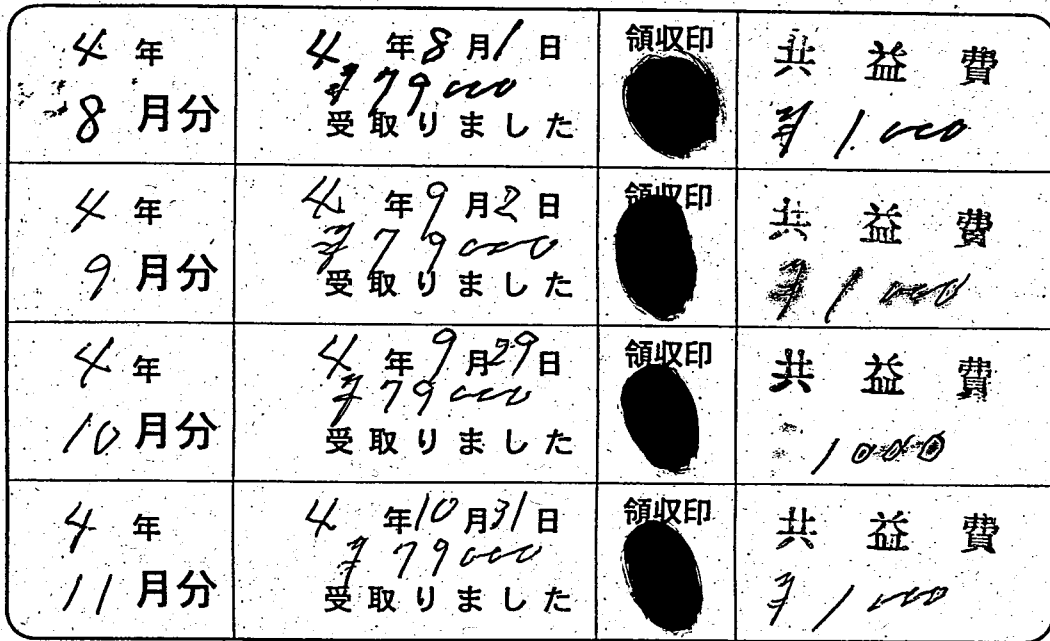 4年
8月分
4年8月1日
¥79000
受取りました
領収印
共益費
¥1.000
4年
9月分
4年9月2日
¥79000
受取りました
領収印
共益費
¥1000
4年
10月分
4年9月29日
¥79000
受取りました
領収印
共益費
1000
4年
11月分
4年10月31日
¥79000
受取りました
領収印
共益費
¥1000